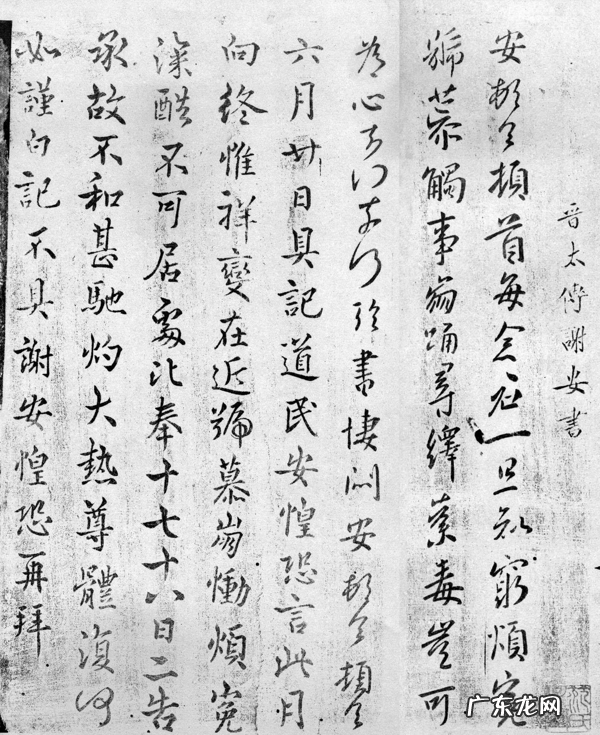 晋太傅謝安書
安頓首頓首每念君一旦知窮煩冤
號慕觸事崩踊尋繹荼毒豈可
為心奈何奈何臨書悽悶安頓首頓首
六月廿日具記道民安惶恐言此月
向終惟祥變在近號慕崩慟煩冤
深酷不可居處比奉十七十八日二告
承故不和甚馳灼大熱尊體復何
如謹白記不具謝安惶恐再拜
广东龙网